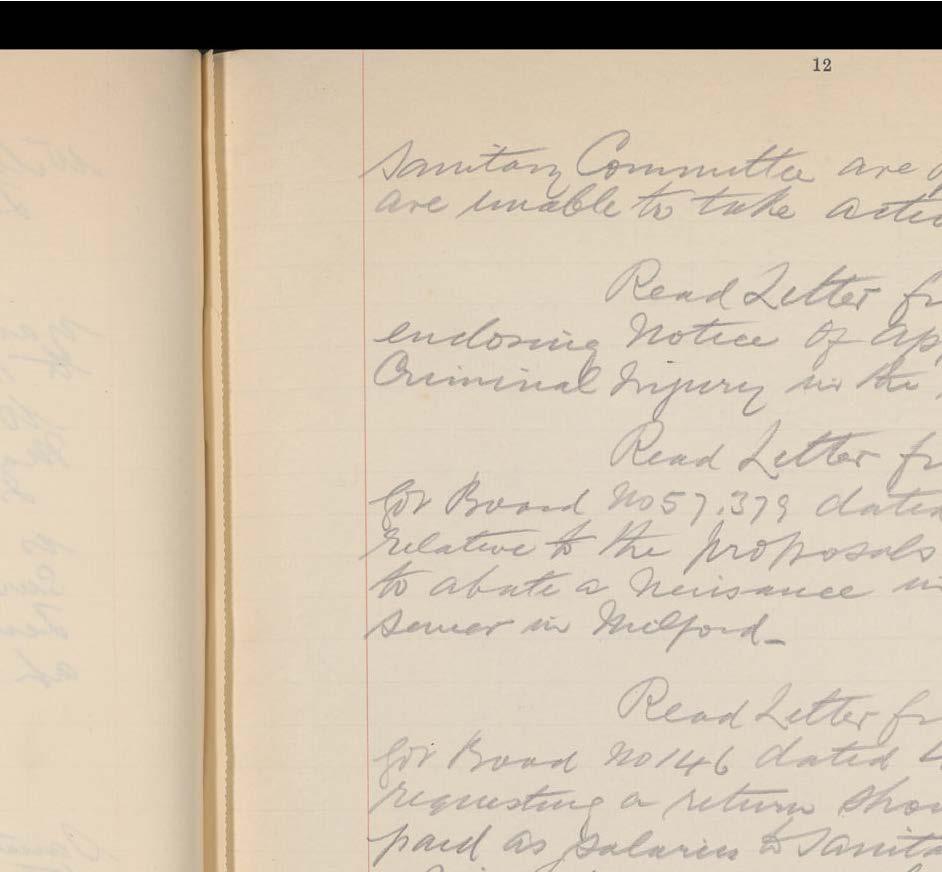 12
Sanitary Committee are
are unable to take actio
Read Letter fr
enclosing Notice of Ap
Criminal Injury in the
Read Letter fr
Gov Board No 57.379 dated
relative to the proposals
to abate a Neusance in
sewer in Milford_
Read Letter fr
Gov Board No 146 dated
requesting a return show
paid as salaries to Sanita